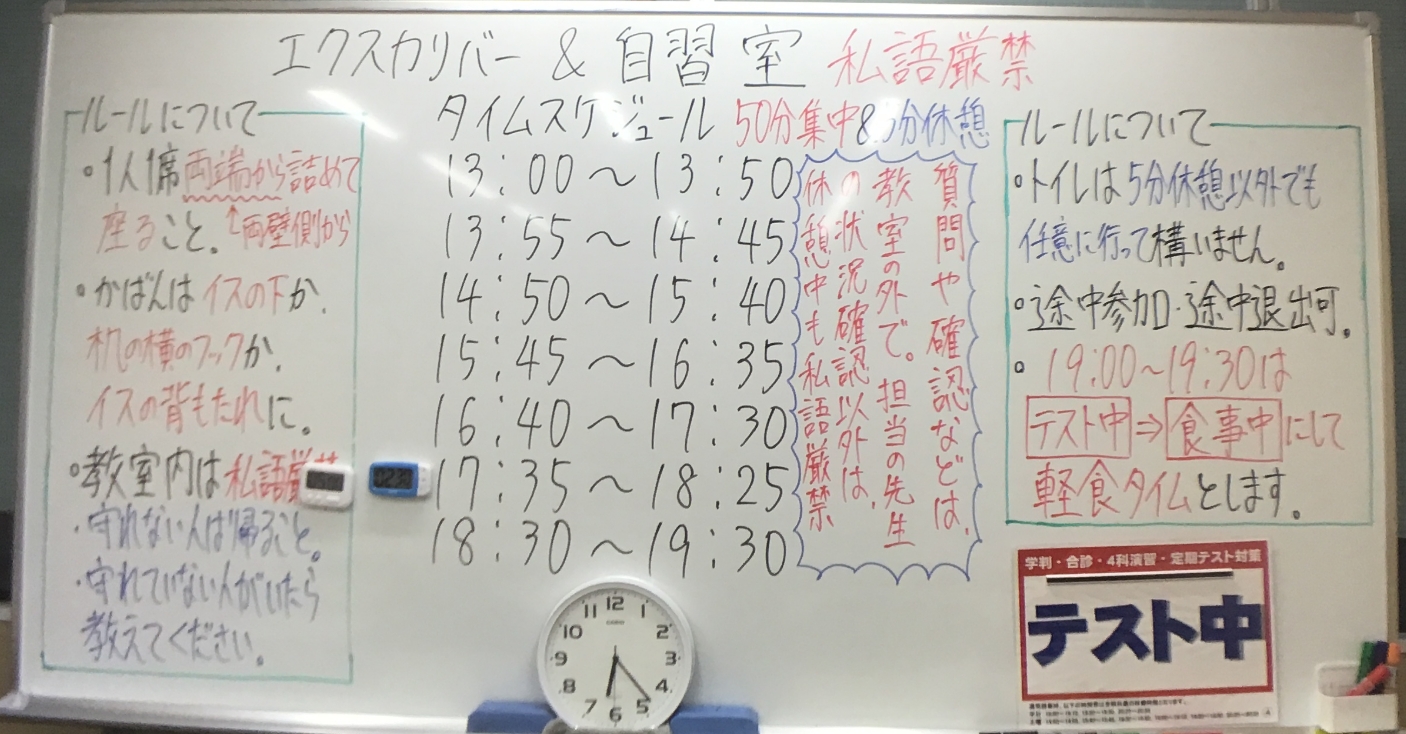 エクスカリバー & 自習室 私語厳禁
ルールについて
・1人1席両端から詰めて
座ること。↑両壁側から
・かばんはイスの下か、
机の横のフックか、
イスの背もたれに。
・教室内は私語厳禁
・守れない人は帰ること。
・守れていない人がいたら
教えてください。
タイムスケジュール 50分集中&5分休憩
13:00〜13:50
13:55〜14:45
14:50〜15:40
15:45〜16:35
16:40〜17:30
17:35〜18:25
18:30〜19:30
質問や確認などは、
教室の外で。担当の先生
の状況確認以外は、
休憩中も私語厳禁
ルールについて
・トイレは5分休憩以外でも
任意に行って構いません。
・途中参加・途中退出可。
・19:00〜19:30は
テスト中⇒食事中にして
軽食タイムとします。
学判・合診・4科演習・定期テスト対策
テスト中
12
1
2
3
4
5
6
7
8
9
10
11